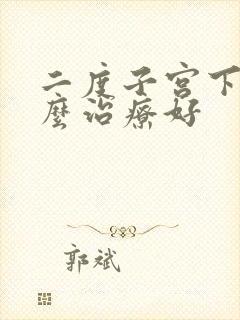 二度子宫下
麼治療好
郭斌